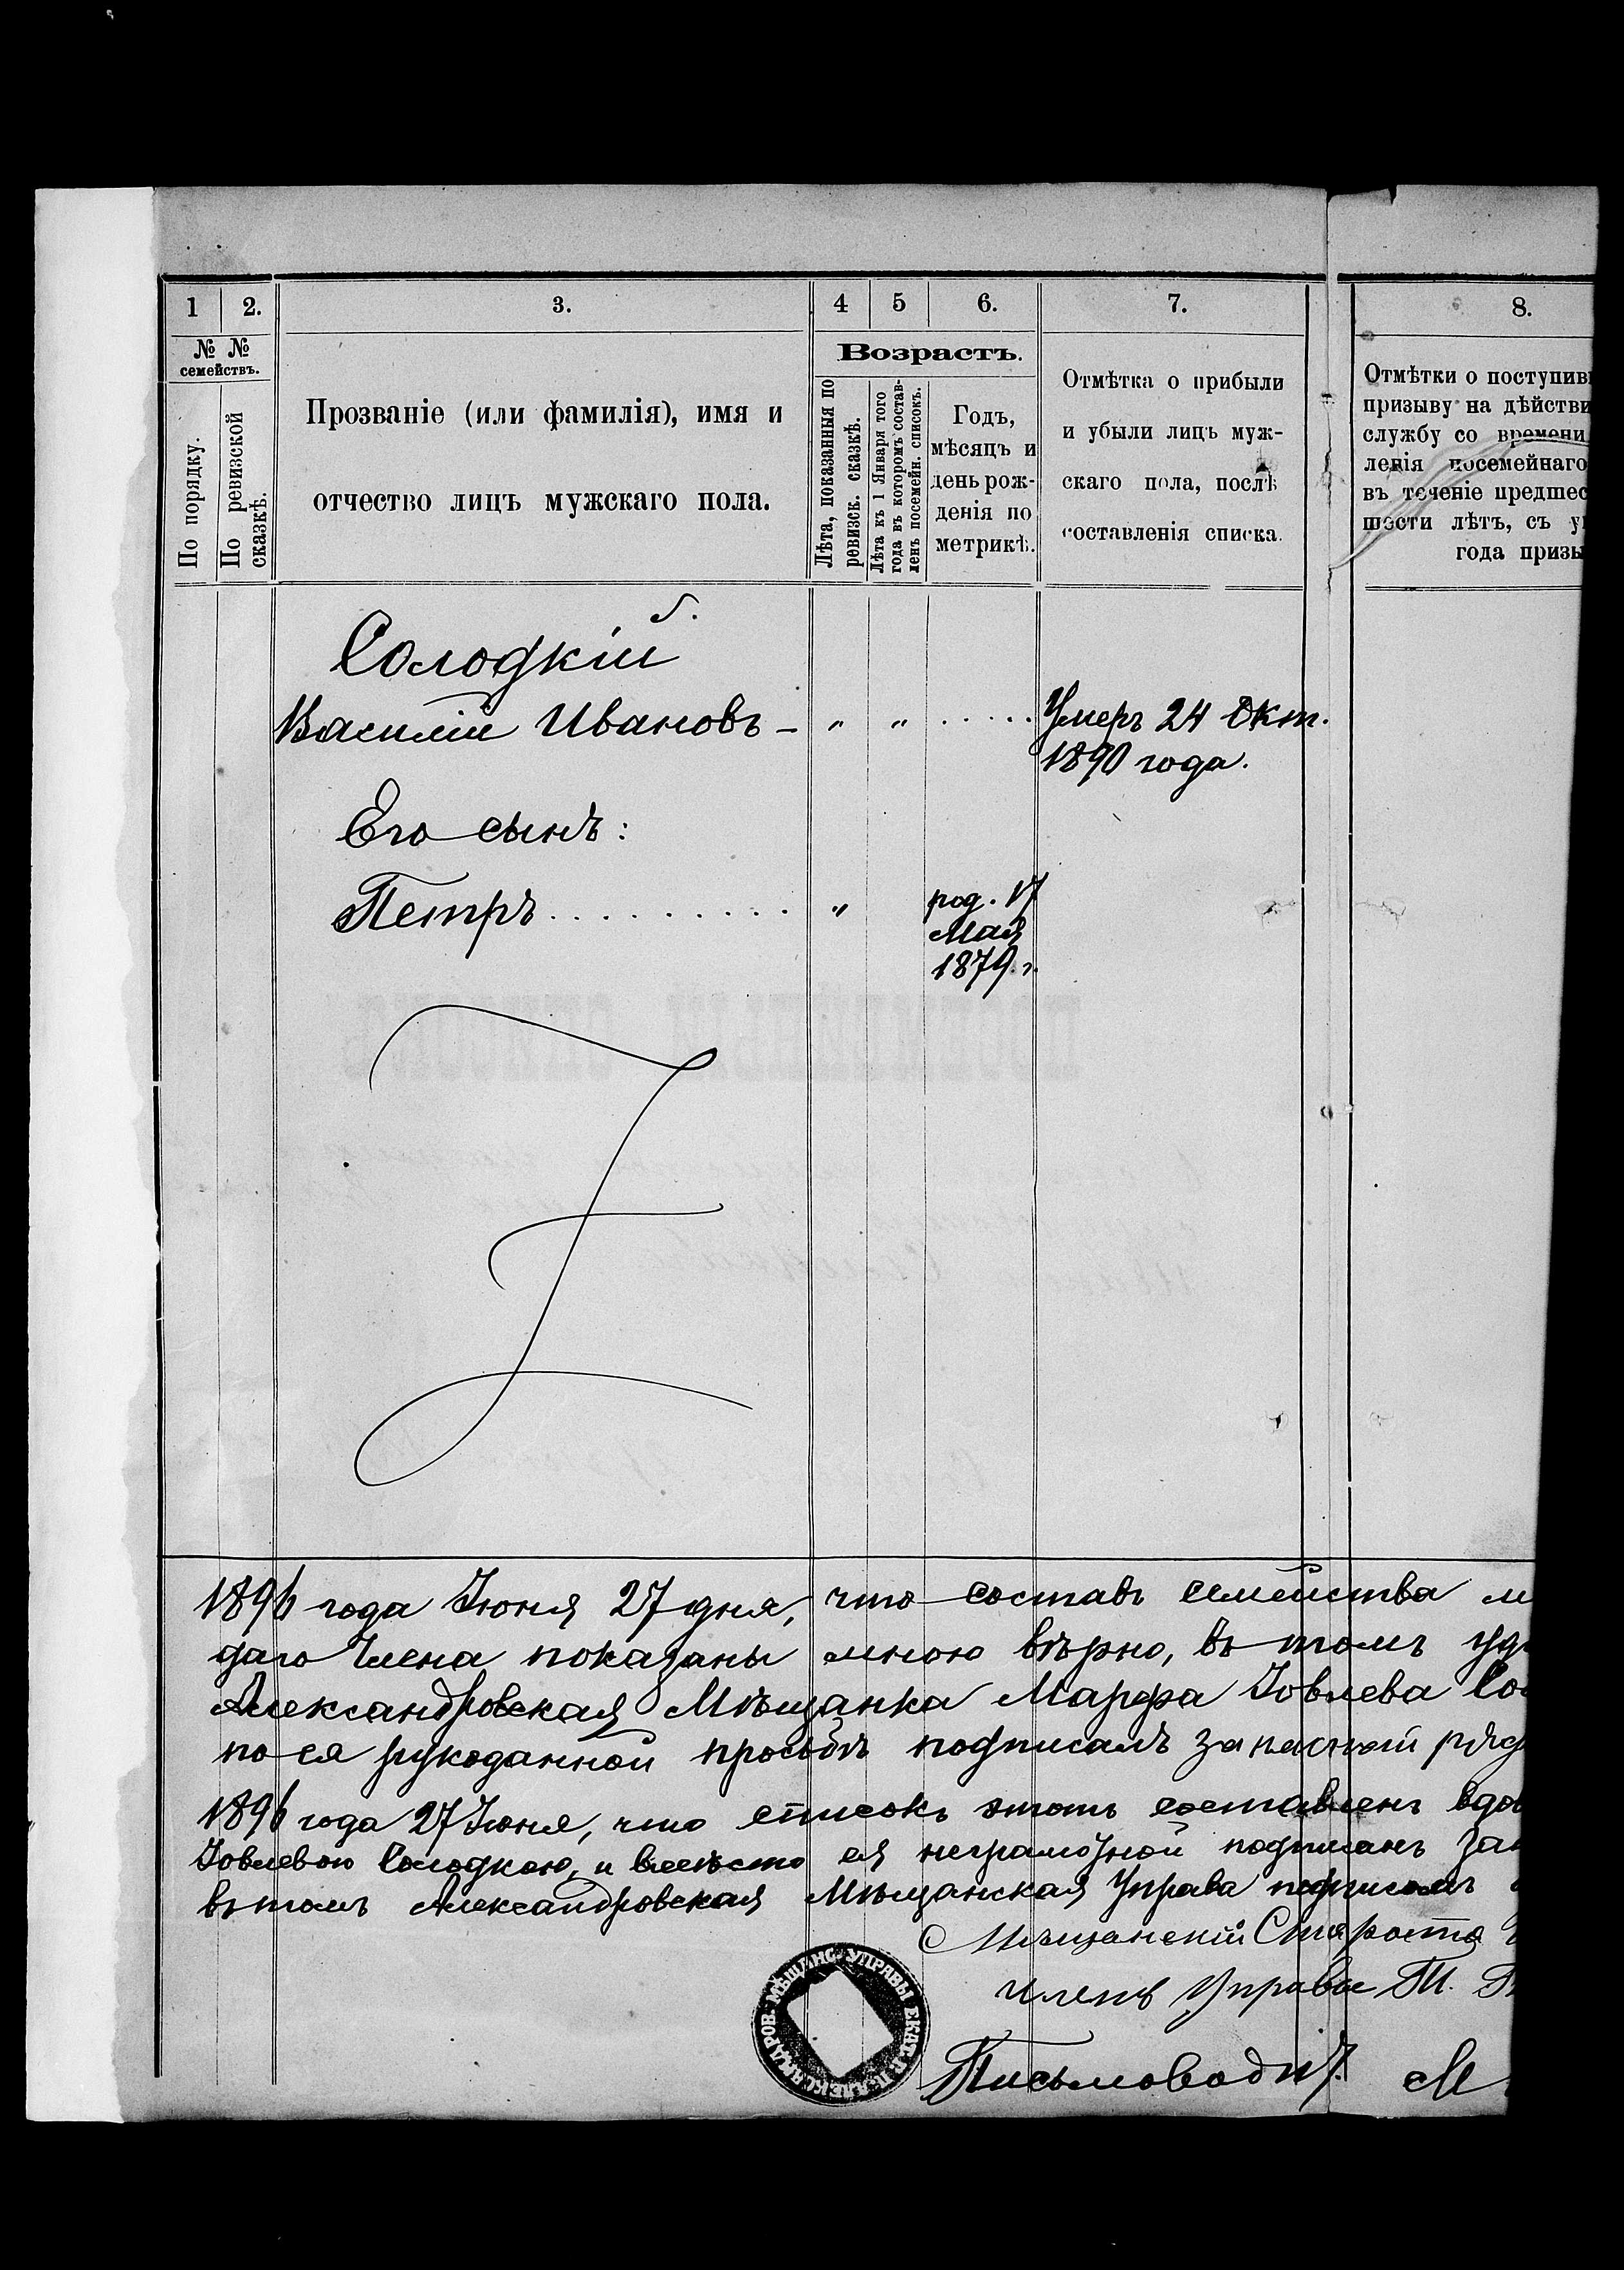 1
2.
3.
4
5
6.
7.
8.
№ №
семействъ.
По порядку.
По ревизской
сказкѣ.
Прозваніе (или фамилія), имя и
отчество лицъ мужскаго пола.
Возрастъ.
Лѣта, показанныя по
ревизск. сказкѣ.
Лѣта къ 1 Января того
года въ которомъ состав-
ленъ посемейн. списокъ.
Годъ,
мѣсяцъ и
день рож-
денія по
метрикѣ.
Отмѣтка о прибыли
и убыли лицъ муж-
скаго пола, послѣ
составленія списка.
Отмѣтки о поступив
призыву на дѣйстви
службу со времени
ленія посемейнаго
въ теченіе предшес
шести лѣтъ, съ у
года призы
Солодкій
Василій Ивановъ – „ „ ..... Умеръ 24 Окт.
1890 года.
Его сынъ:
Петръ.......... „ род. 17
Мая
1879 г.
1896 года Іюня 27 дня, что составъ семейства м
даго члена показаны мною вѣрно, въ томъ уд
Александровская Мѣщанка Марфа Іовлева Сол
по ея рукоданной просьбѣ подписалъ запасной ряд
1896 года 27 Іюня, что списокъ этотъ составленъ вдов
Іовлевою Солодкою, и вмѣсто ея неграмотной подписанъ зап
въ томъ Александровская Мѣщанская Управа подписомъ
Мѣщанскій Староста
Членъ Управы П.
Письмоводит. М
АЛЕКСАНДРОВ. МѢЩАНС. УПРАВЫ ЕКАТ. Г.